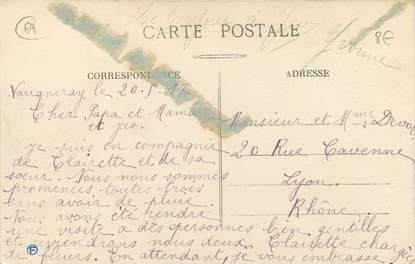 69
8€
Yvonne
CARTE POSTALE
CORRESPONDANCE
ADRESSE
Vaugneray le 20-5-
Cher Papa et Mama
et
Je suis en compagnie
de Clairette et de sa
soeur. Nous nous sommes
promenées toutes trois
sans avoir de pluie.
Nous avons été rendre
une visite a des personnes bien gentilles
et reviendrons nous deux Clairette chargées
de fleurs. En attendant, je vous embrasse
Monsieur et Mme
20 Rue Cavenne
Lyon
Rhône